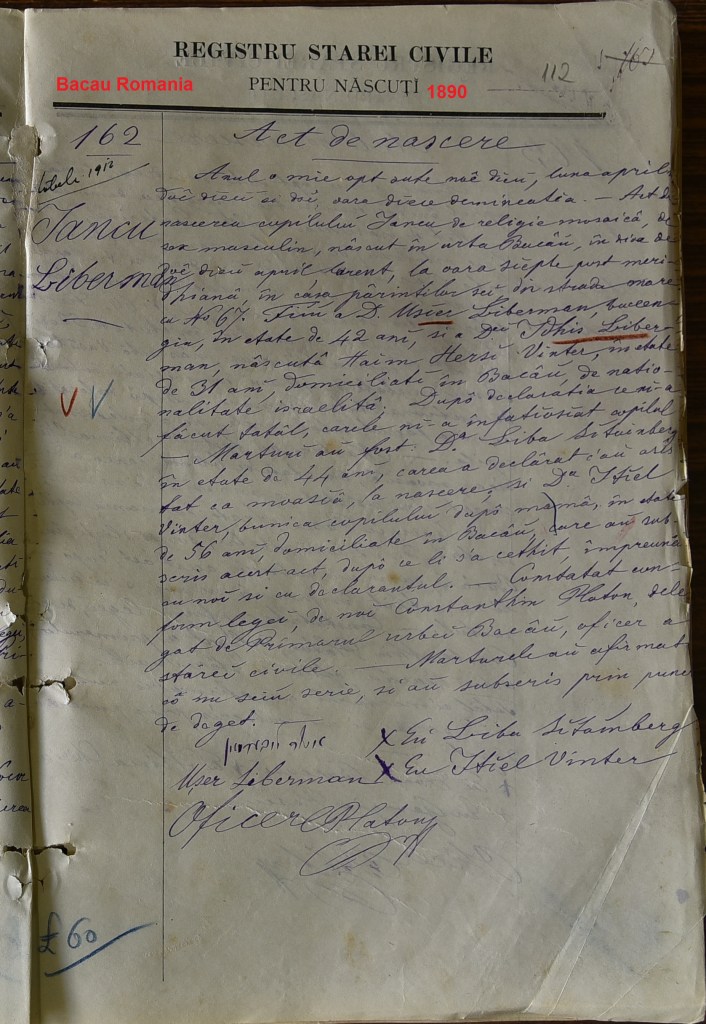 REGISTRU STAREI CIVILE
Bacau Romania
PENTRU NĂSCUȚI
1890
112
162
Act de nascere
1912
Iancu
Liberman
Anul o mie opt sute noĕ dieci, luna april
doĕ dieci si doĭ, oare diece demineatia. — Act de
nascerea copilului Iancu, de religie mosaică, de
sex masculin, născut în urba Bacău, în diua de
doĕ dieci april curent, la oara siepte post meri-
dhiană, în casa părintilor sei din strada
cu No 67. Fiiu a D. Usier Liberman,
în etate de 42 anĭ, si a Dnei Idhis Liber-
man, născută Haim Hersĭ Vinter, în etate
de 31 anĭ, domiciliatĭ în Bacău, de natio-
nalitate israelită; După declaratia ce ni-a
făcut tatăl, carele ni-a înfatiosiat copilul
— Marturi au fost: Da Liba Sitainberg
în etate de 44 anĭ, carea a declarat c'au asis
tat ca moasiă, la nascere, si Da Itĭel
Vinter, bunica copilului după mamă, în etate
de 56 anĭ, domiciliate în Bacău, care au sub-
scris acest act, după ce li s'a cethit, împreună
cu noĭ si cu declarantul. — Constatat con-
form legeĭ, de noĭ Constanthin Platon, dele
gat de Primarul urbeĭ Bacău, oficer a
stăreĭ civile. — Marturele au afirmat
că nu sciu scrie, si au subscris prin punere
de deget.
אושר ליבערמאן
X Eu Liba Sitaimberg
Ușer Liberman
X Eu Itĭel Vinter
Oficer CPlaton
V V
£60